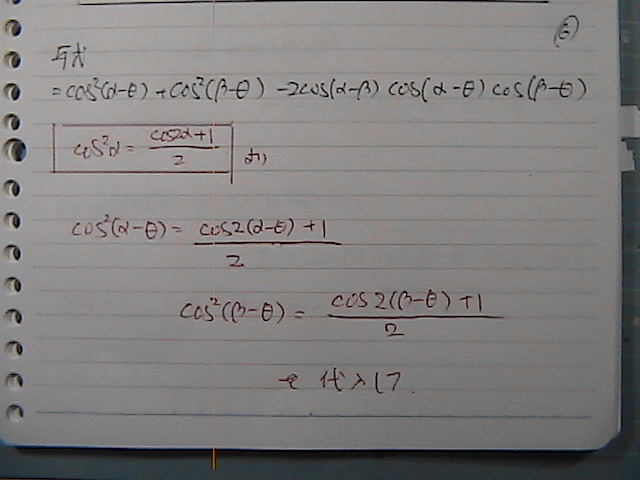 ⑥
与式
=cos²(α-θ)+cos²(β-θ)-2cos(α-β)cos(α-θ)cos(β-θ)
cos²α=\frac{cos2α+1}{2} より
cos²(α-θ)=\frac{cos2(α-θ)+1}{2}
cos²(β-θ)=\frac{cos2(β-θ)+1}{2}
を代入して.